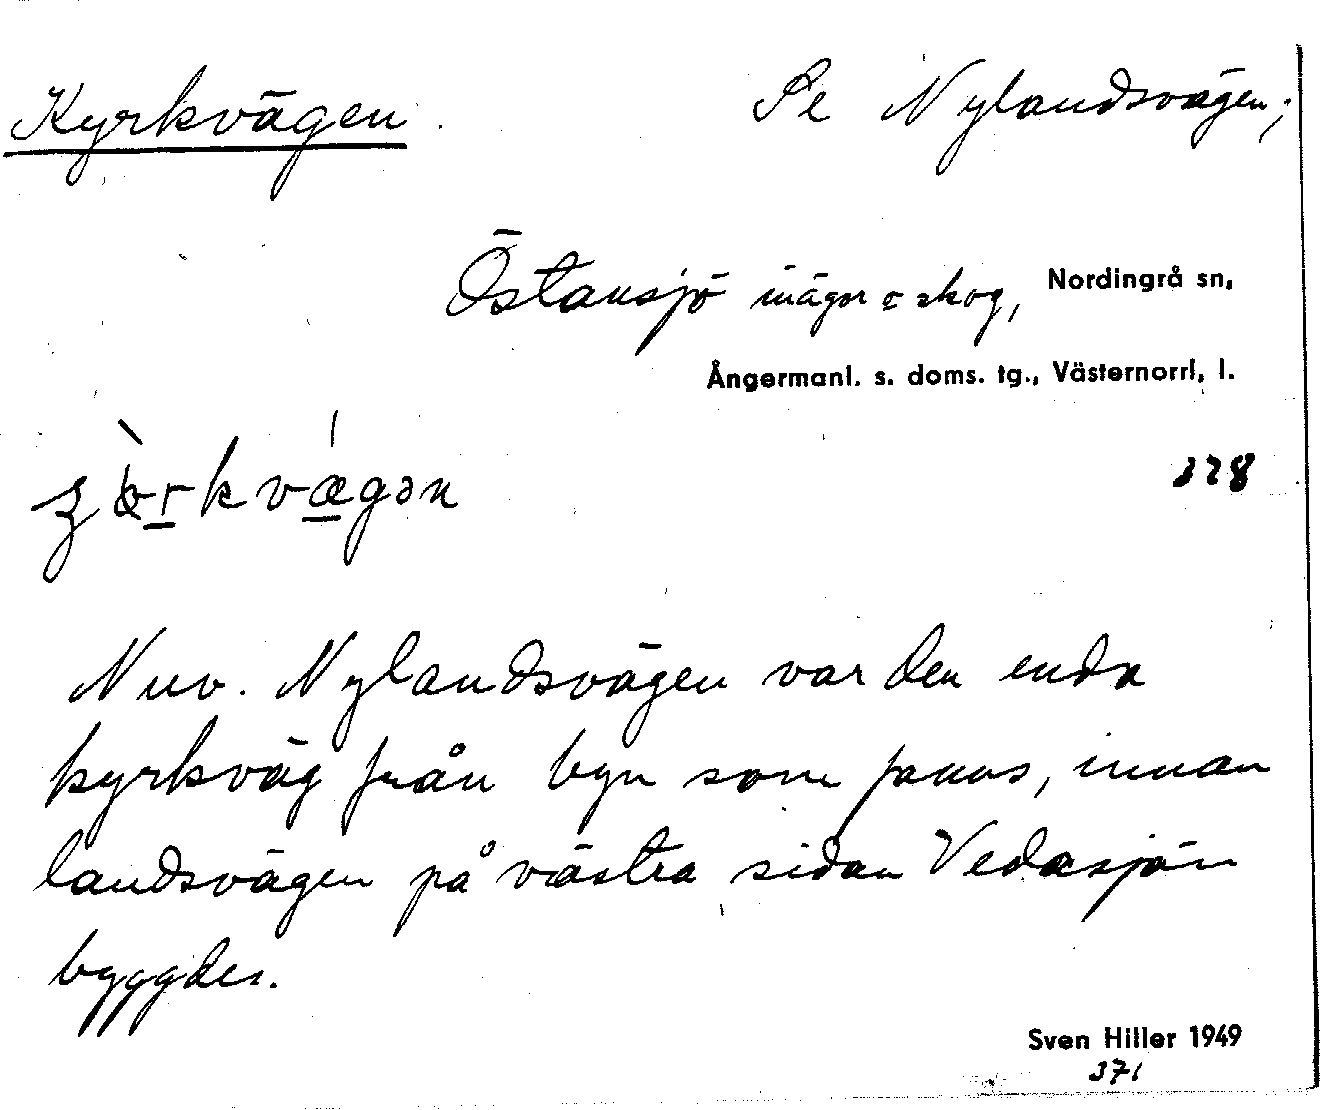 Kyrkvägen. Se Nylandsvägen;
Östansjö inägor o skog, Nordingrå sn,
Ångermanl. s. doms. tg., Västernorrl. l.
378
Nuv. Nylandsvägen var den enda
kyrkväg från byn som fanns, innan
landsvägen på västra sidan Vedasjön
byggdes.
Sven Hiller 1949
371